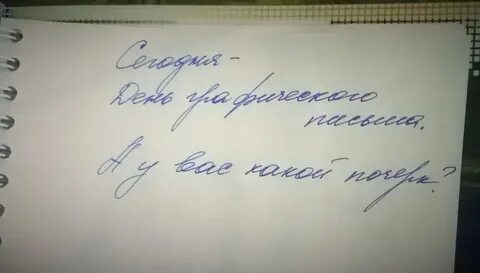 Сегодня-
День графического
письма.
А у вас какой почерк?